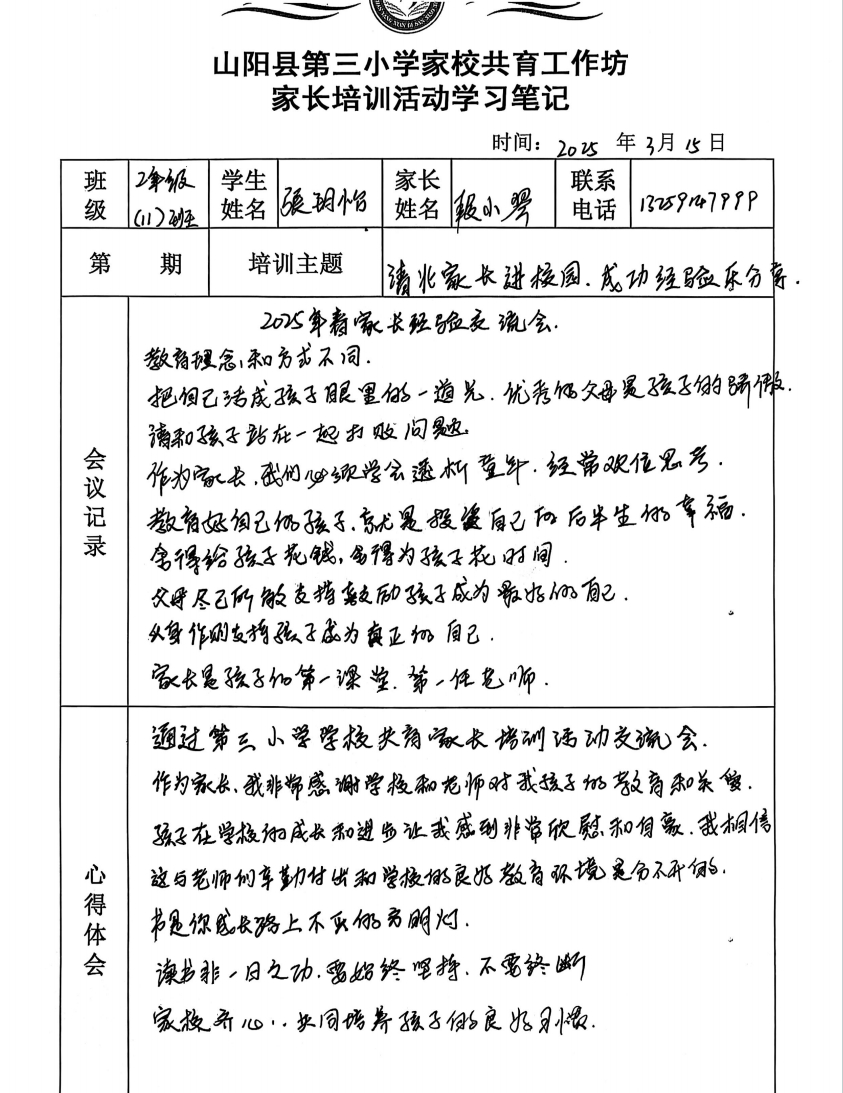 山阳县第三小学家校共育工作坊
家长培训活动学习笔记
时间：2025 年 3月 15 日
班级 2年级(11)班 学生姓名 张玥怡 家长姓名 段小琴 联系电话
第 期 培训主题 请北家长进校园.成功经验乐分享.
会议记录
2025年春家长经验交流会.
教育理念,和方式不同.
把自己活成孩子眼里的一道光.优秀的父母是孩子的骄傲.
请和孩子站在一起打败问题
作为家长,我们必须学会透析童年.经常换位思考.
教育好自己的孩子,就是投资自己的后半生的幸福.
舍得给孩子花钱,舍得为孩子花时间.
父母尽己所能支持鼓励孩子成为最好的自己.
以身作则支持孩子成为真正的自己.
家长是孩子的第一课堂.第一任老师.
心得体会
通过第三小学学校共育家长培训活动交流会.
作为家长,我非常感谢学校和老师对我孩子的教育和关爱.
孩子在学校的成长和进步让我感到非常欣慰和自豪.我相信
这与老师们辛勤付出和学校的良好教育环境是分不开的.
书是你成长路上不灭的方明灯.
读书非一日之功.要始终坚持.不要终断
家校齐心..共同培养孩子的良好习惯.